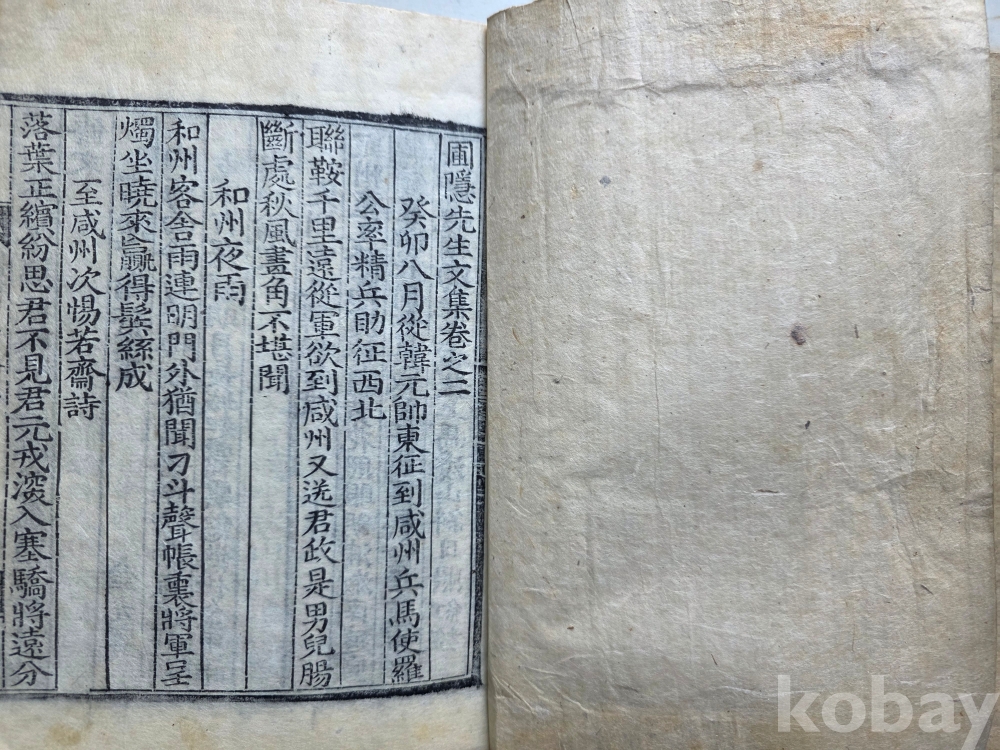 圃隱先生文集卷之二
癸卯八月從韓元帥東征到咸州兵馬使羅
公率精兵助征西北
聯鞍千里遠從軍欲到咸州又送君政是男兒腸
斷處秋風畫角不堪聞
和州夜雨
和州客舍雨連明門外猶聞刁斗聲帳裏將軍呈
燭坐曉來贏得鬂絲成
至咸州次惕若齋詩
落葉正繽紛思君不見君元戎深入塞驕將遠分
kobay